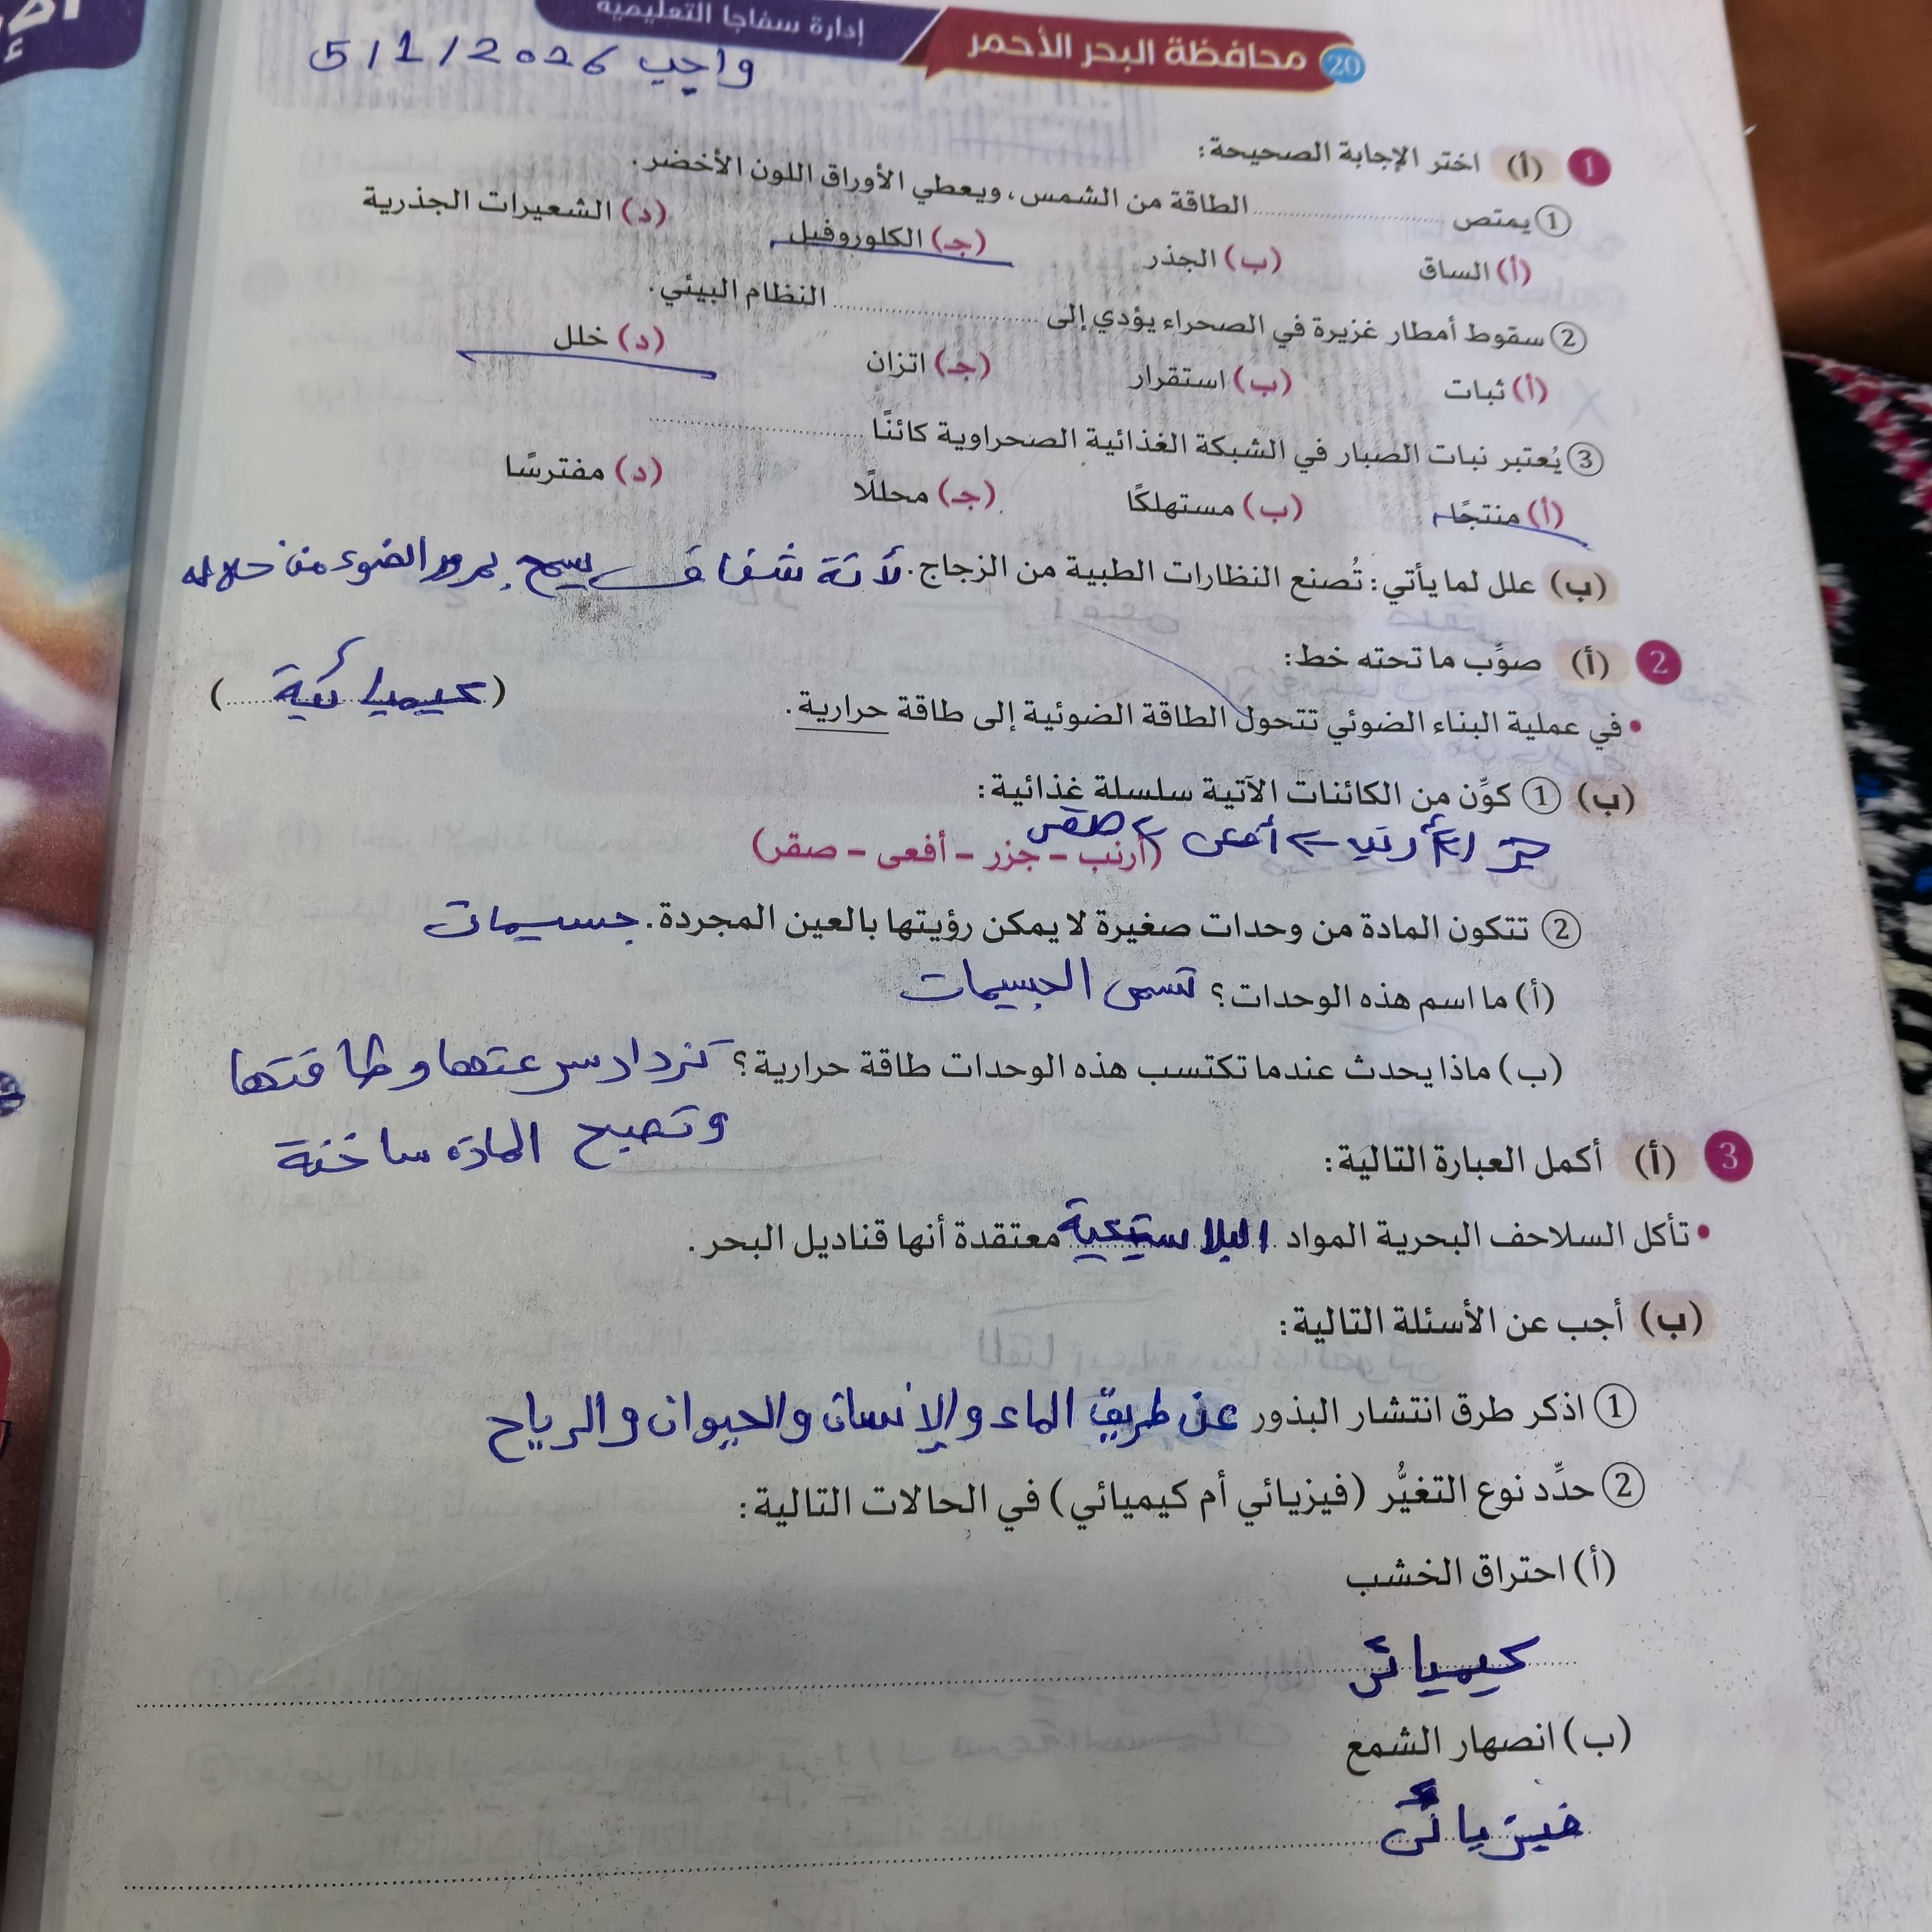 إدارة سفاجا التعليمية
20 محافظة البحر الأحمر
واجب 5/1/2026
1 (أ) اختر الإجابة الصحيحة:
① يمتص .................... الطاقة من الشمس، ويعطي الأوراق اللون الأخضر.
(أ) الساق (ب) الجذر (جـ) الكلوروفيل (د) الشعيرات الجذرية
② سقوط أمطار غزيرة في الصحراء يؤدي إلى .................... النظام البيئي.
(أ) ثبات (ب) استقرار (جـ) اتزان (د) خلل
③ يُعتبر نبات الصبار في الشبكة الغذائية الصحراوية كائنًا ....................
(أ) منتجًا (ب) مستهلكًا (جـ) محللًا (د) مفترسًا
(ب) علل لما يأتي: تُصنع النظارات الطبية من الزجاج. لأنة شفاف يسمح بمرور الضوء من خلاله
2 (أ) صوِّب ما تحته خط:
• في عملية البناء الضوئي تتحول الطاقة الضوئية إلى طاقة حرارية. (كيميائية)
(ب) ① كوِّن من الكائنات الآتية سلسلة غذائية:
جزر ← أرنب ← أفعى ← صقر
(أرنب – جزر – أفعى – صقر)
② تتكون المادة من وحدات صغيرة لا يمكن رؤيتها بالعين المجردة. جسيمات
(أ) ما اسم هذه الوحدات؟ تسمى الجسيمات
(ب) ماذا يحدث عندما تكتسب هذه الوحدات طاقة حرارية؟ تزداد سرعتها وطاقتها
وتصبح المادة ساخنة
3 (أ) أكمل العبارة التالية:
• تأكل السلاحف البحرية المواد البلاستيكية معتقدة أنها قناديل البحر.
(ب) أجب عن الأسئلة التالية:
① اذكر طرق انتشار البذور عن طريق الماء والإنسان والحيوان والرياح
② حدِّد نوع التغيُّر (فيزيائي أم كيميائي) في الحالات التالية:
(أ) احتراق الخشب
كيميائى
(ب) انصهار الشمع
فيزيائى